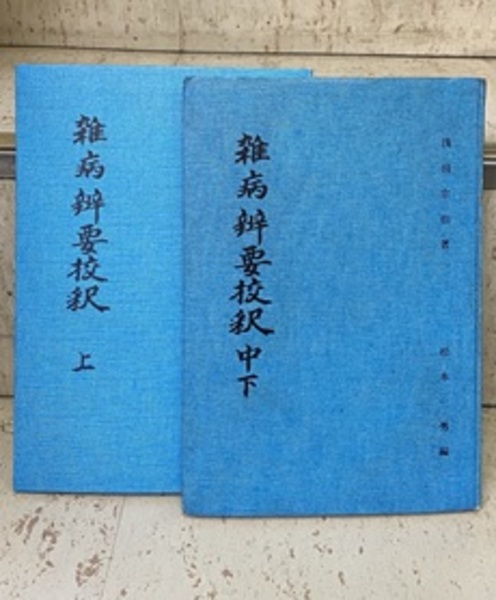 雑病辨要校釈
上
雑病辨要校釈
中下
浅田宗伯著
松本一男編